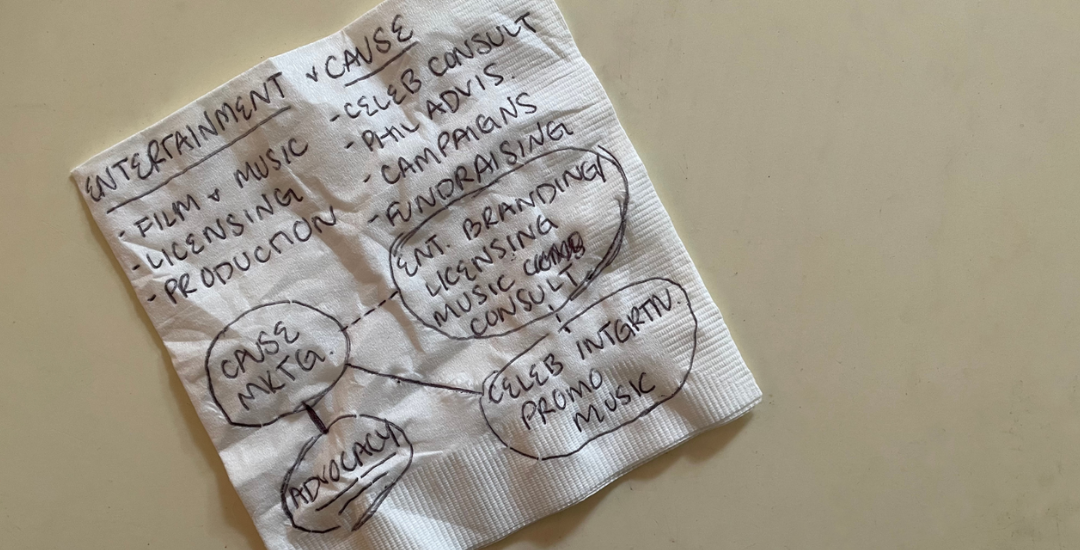 ENTERTAINMENT & CAUSE
- FILM & MUSIC
- LICENSING
- PRODUCTION
- CELEB CONSULT
- PHIL ADVIS.
- CAMPAIGNS
- FUNDRAISING
ENT. BRANDING/
LICENSING
MUSIC
CONSULT
CAUSE
MKTG.
CELEB INTGRTN.
PROMO
MUSIC
ADVOCACY